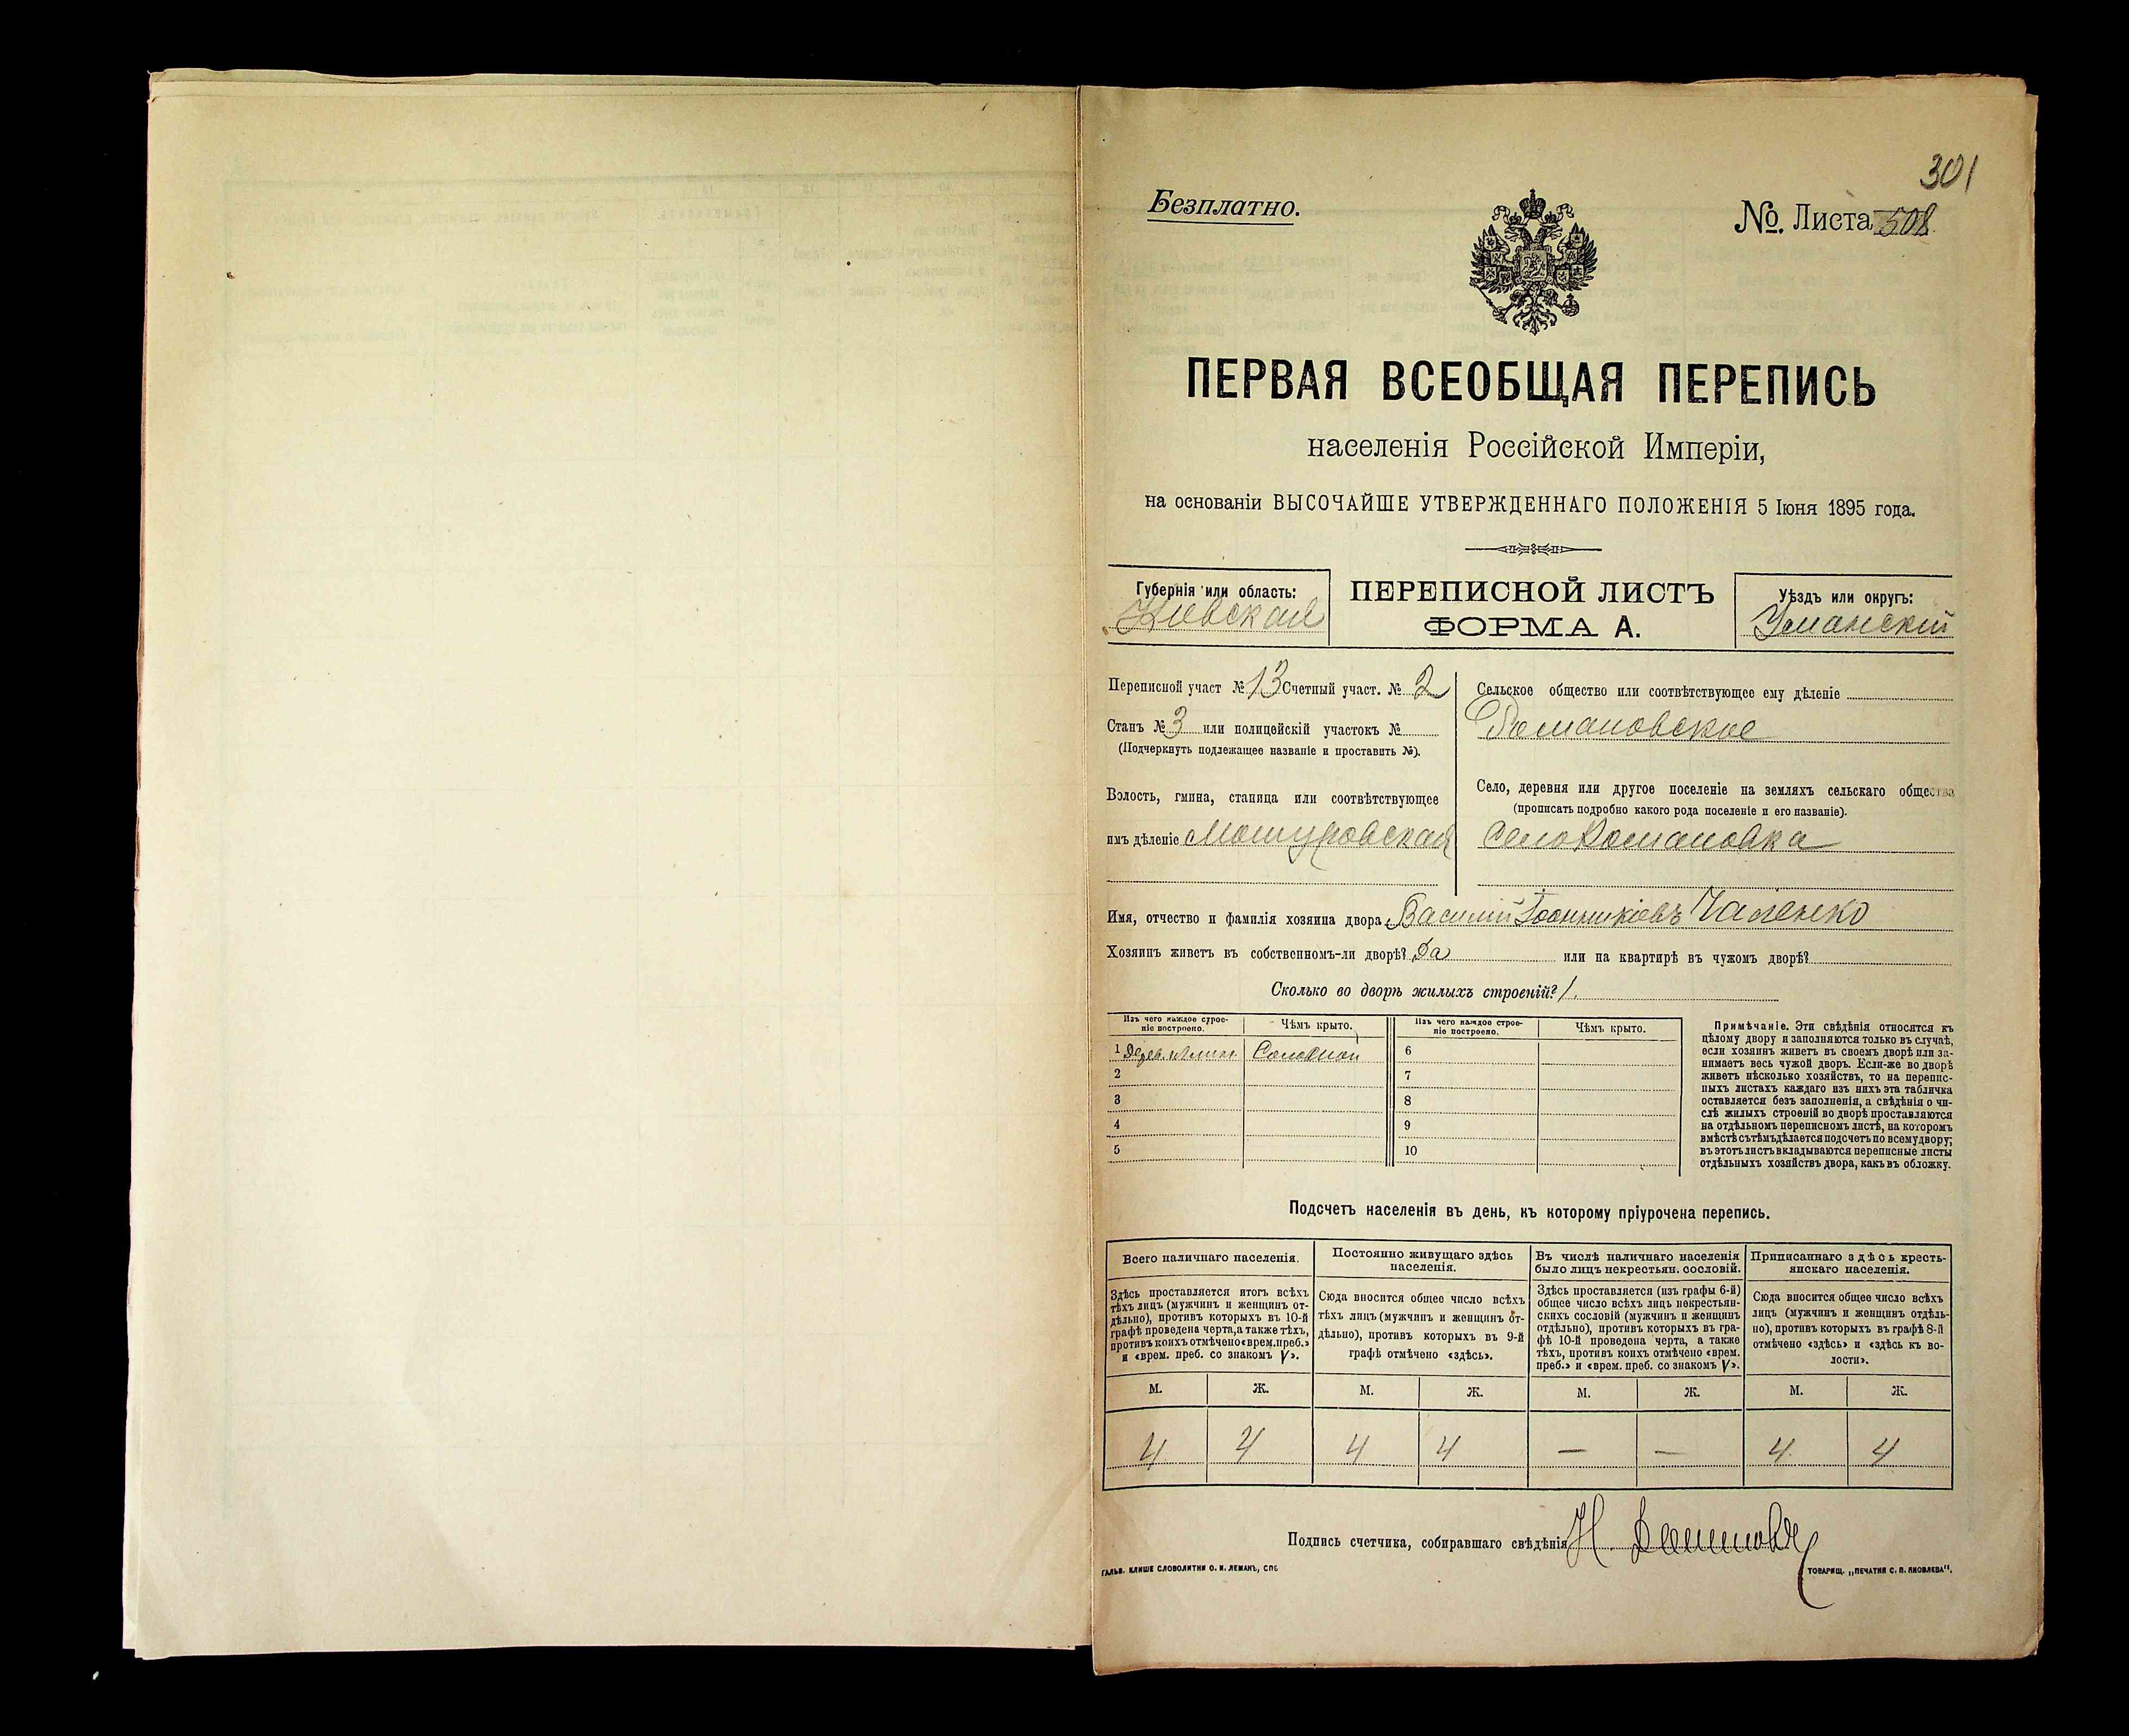 301
Безплатно.
№. Листа
ПЕРВАЯ ВСЕОБЩАЯ ПЕРЕПИСЬ
населенія Россійской Имперіи,
на основаніи ВЫСОЧАЙШЕ УТВЕРЖДЕННАГО ПОЛОЖЕНІЯ 5 Іюня 1895 года.
Губернія или область:
Кіевская
ПЕРЕПИСНОЙ ЛИСТЪ
ФОРМА А.
Уѣздъ или округъ:
Уманскій
Переписной участ № 13 Счетный участ. № 2
Станъ № 3 или полицейскій участокъ №
(Подчеркнуть подлежащее названіе и проставить №).
Волость, гмина, станица или соотвѣтствующее
имъ дѣленіе Мошуровская
Сельское общество или соотвѣтствующее ему дѣленіе
Романовское
Село, деревня или другое поселеніе на земляхъ сельскаго общества
(прописать подробно какого рода поселеніе и его названіе).
Село Романовка
Имя, отчество и фамилія хозяина двора Василій Іоанникіевъ Чаленко
Хозяинъ живетъ въ собственномъ-ли дворѣ? Да или на квартирѣ въ чужомъ дворѣ?
Сколько во дворѣ жилыхъ строеній? 1.
Изъ чего каждое строе-
ніе построено.
Чѣмъ крыто.
Изъ чего каждое строе-
ніе построено.
Чѣмъ крыто.
1 Дерев. Соломой 6
2 7
3 8
4 9
5 10
Примѣчаніе. Эти свѣдѣнія относятся къ
цѣлому двору и заполняются только въ случаѣ,
если хозяинъ живетъ въ своемъ дворѣ или за-
нимаетъ весь чужой дворъ. Если-же во дворѣ
живетъ нѣсколько хозяйствъ, то на перепис-
ныхъ листахъ каждаго изъ нихъ эта табличка
оставляется безъ заполненія, а свѣдѣнія о чи-
слѣ жилыхъ строеній во дворѣ проставляются
на отдѣльномъ переписномъ листѣ, на которомъ
вмѣстѣ съ тѣмъ дѣлается подсчетъ по всему двору;
въ этотъ листъ вкладываются переписные листы
отдѣльныхъ хозяйствъ двора, какъ въ обложку.
Подсчетъ населенія въ день, къ которому пріурочена перепись.
Всего наличнаго населенія.
Здѣсь проставляется итогъ всѣхъ
тѣхъ лицъ (мужчинъ и женщинъ от-
дѣльно), противъ которыхъ въ 10-й
графѣ проведена черта, а также тѣхъ,
противъ коихъ отмѣчено «врем. преб.»
и «врем. преб. со знакомъ V».
Постоянно живущаго здѣсь
населенія.
Сюда вносится общее число всѣхъ
тѣхъ лицъ (мужчинъ и женщинъ от-
дѣльно), противъ которыхъ въ 9-й
графѣ отмѣчено «здѣсь».
Въ числѣ наличнаго населенія
было лицъ некрестьян. сословій.
Здѣсь проставляется (изъ графы 6-й)
общее число всѣхъ лицъ некрестьян-
скихъ сословій (мужчинъ и женщинъ
отдѣльно), противъ которыхъ въ гра-
фѣ 10-й проведена черта, а также
тѣхъ, противъ коихъ отмѣчено «врем.
преб.» и «врем. преб. со знакомъ V».
Приписаннаго здѣсь кресть-
янскаго населенія.
Сюда вносится общее число всѣхъ
лицъ (мужчинъ и женщинъ отдѣль-
но), противъ которыхъ въ графѣ 8-й
отмѣчено «здѣсь» и «здѣсь къ во-
лости».
М. Ж. М. Ж. М. Ж. М. Ж.
4 4 4 4 — — 4 4
Подпись счетчика, собиравшаго свѣдѣнія Н.
ГАЛЬВ. КЛИШЕ СЛОВОЛИТНИ О. И. ЛЕМАНЪ, СПБ
ТОВАРИЩ. „ПЕЧАТНЯ С. П. ЯКОВЛЕВА".